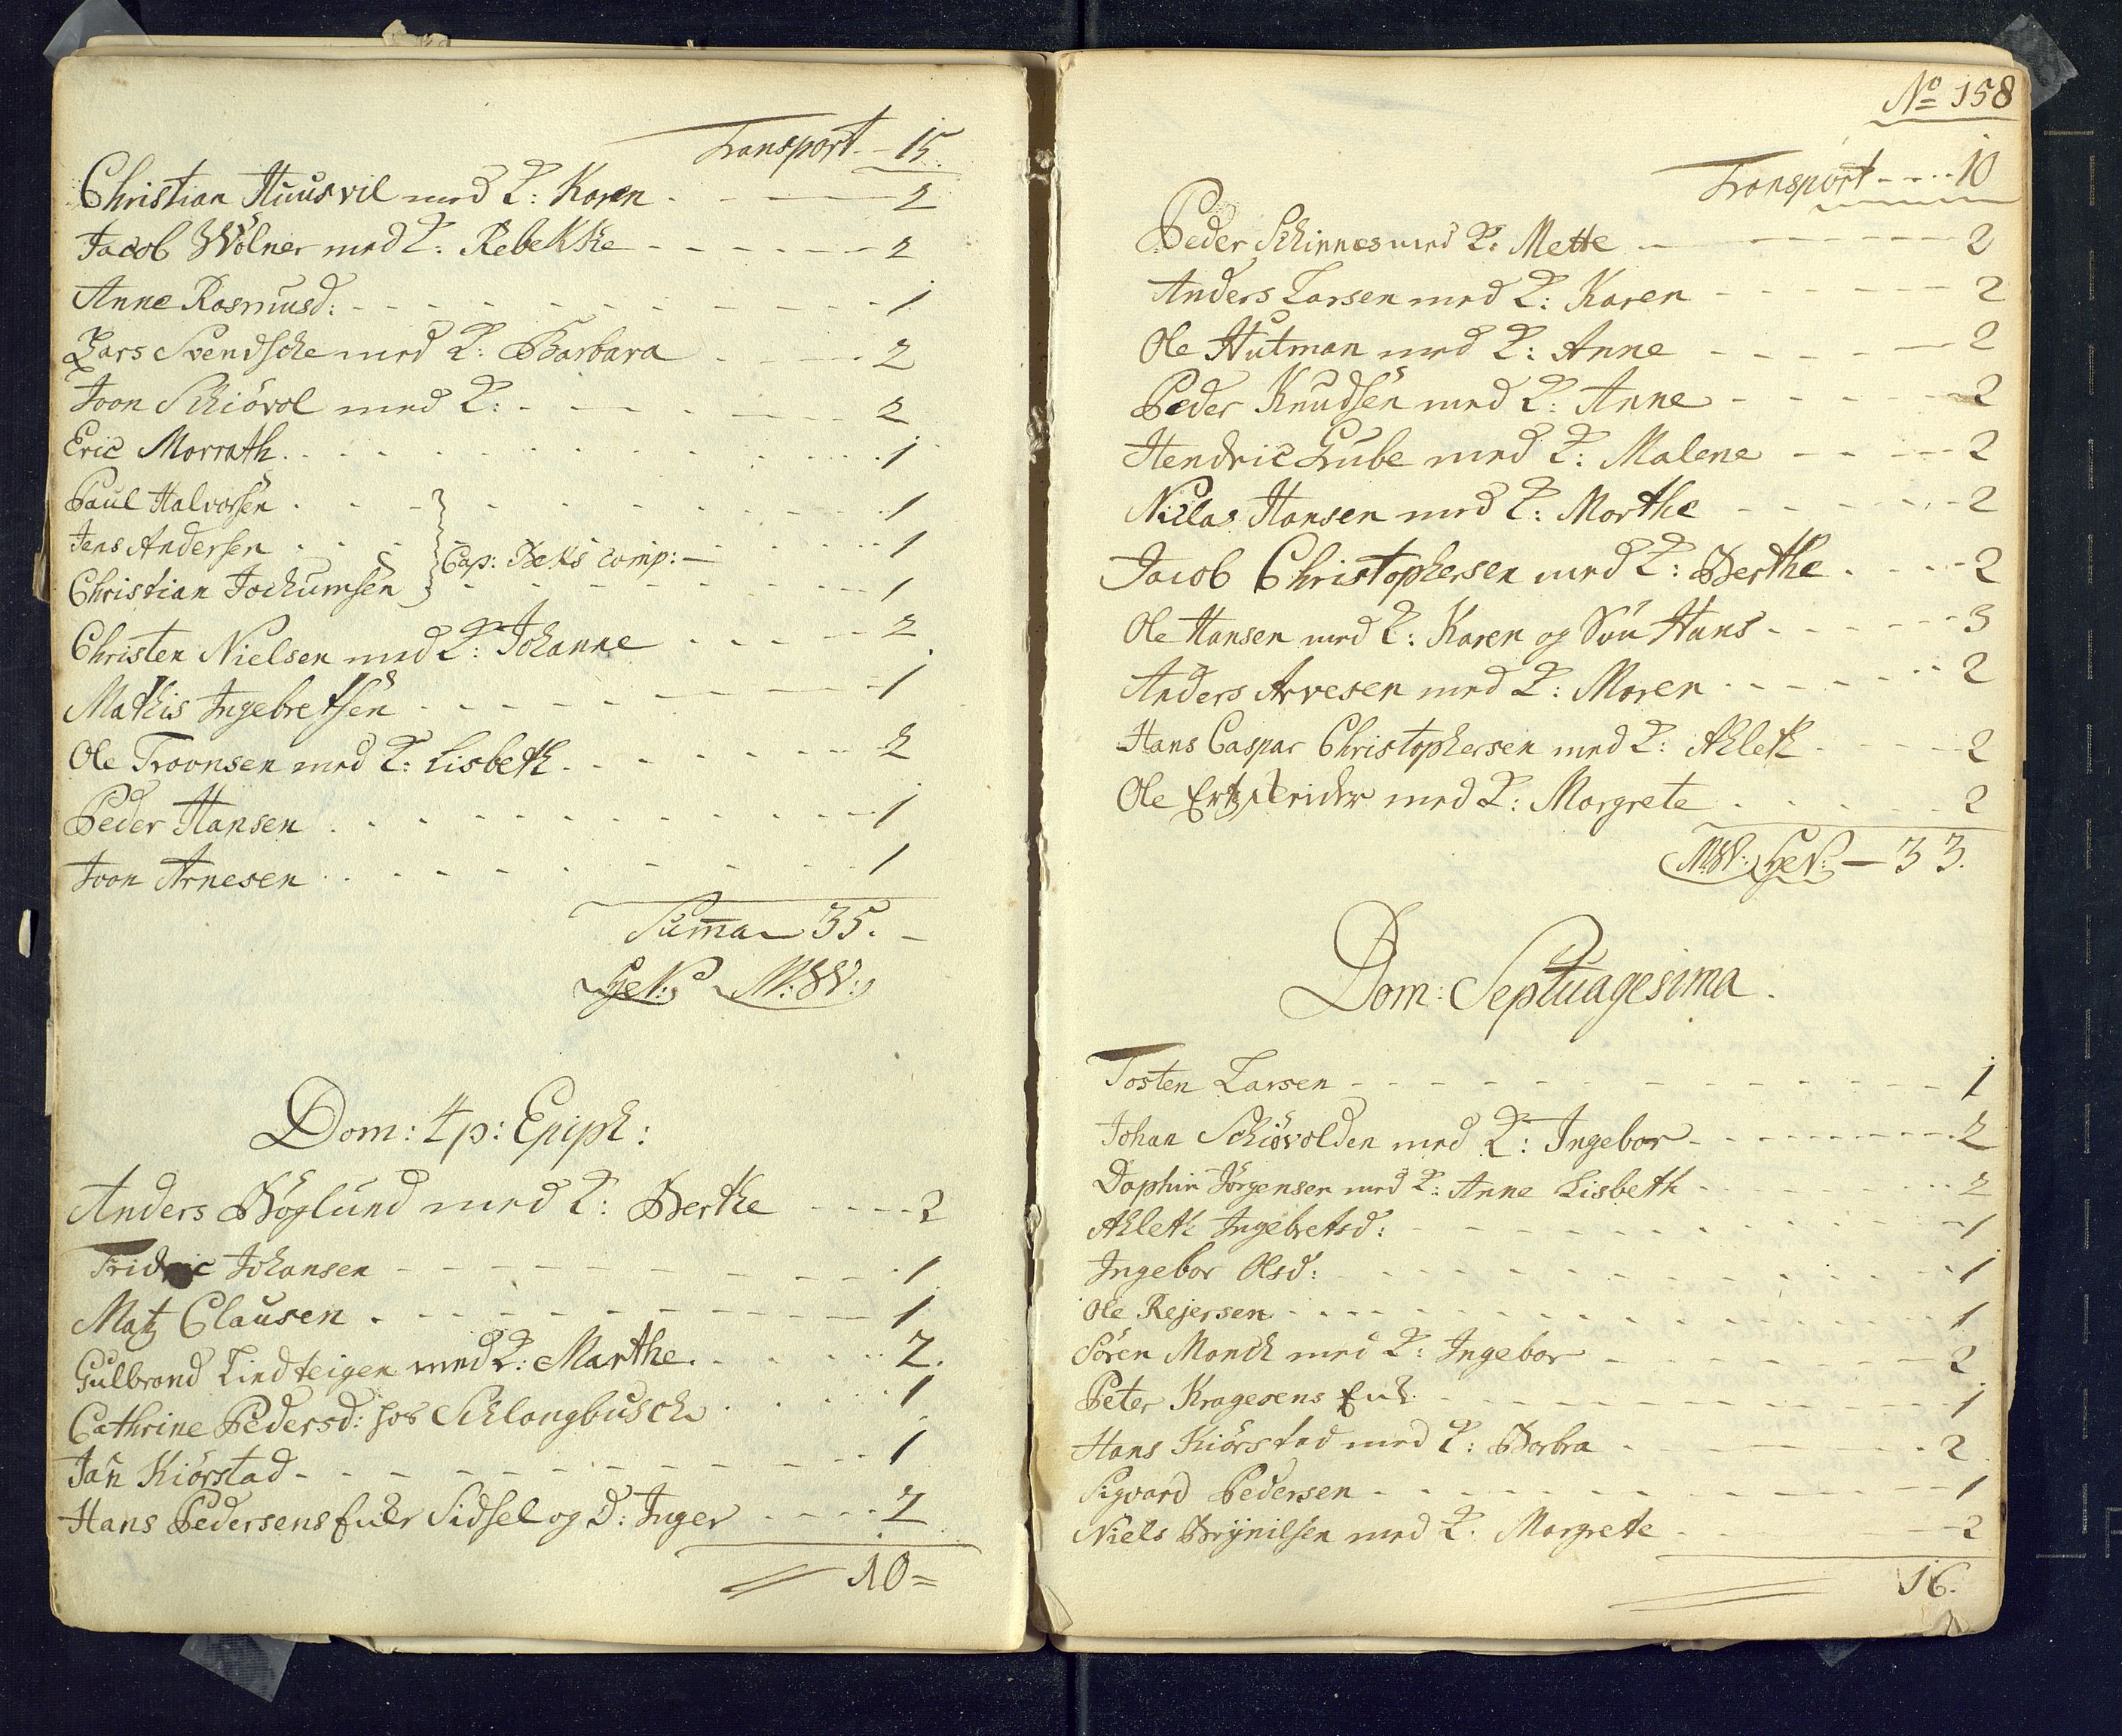 Transport - 15.
Christian Huusvil med K: Karen - 2
Jacob Wölner med K: Rebekke - 2
Anne Rasmusd: - 1
Lars Svendsche med K: Barbara - 2
Joon Schiövol med K: - 2
Eric Morrath - 1
Paul Halvorsen - 1
Jens Andersen - 1
Cap: Beks comp:
Christian Jochumsen - 1
Christen Nielsen med K: Johanne - 2
Mathis Ingebretsen - 1
Ole Troonsen med K: Lisbeth - 2
Peder Hansen - 1
Joon Arnesen - 1
Summa 35.
Dom: 4 p: Epiph:
Anders Böglund med K: Berthe - 2
Fridric Johansen - 1
Matz Clausen - 1
Gulbrand Lindteigen med K: Marthe - 2.
Cathrine Pedersd: hos Schlangbusch - 1
Jan Kiörstad - 1
Hans Pedersens Enke Sidsel og D: Inger - 2
10=
No 158
Transport - 10
Peder Schinnes med K: Mette - 2
Anders Larsen med K: Karen - 2
Ole Hutman med K: Anne - 2
Peder Knudsen med K: Anne - 2
Hendric Grube med K: Malene - 2
Niclas Hansen med K: Morthe - 2
Jacob Christophersen med K: Berthe - 2
Ole Hansen med K: Karen og Sön Hans - 3
Anders Arvesen med K: Maren - 2
Hans Caspar Christophersen med K: Ahleth - 2
Ole med K: Margrete - 2
33.
Dom: Septuagesima.
Tosten Larsen - 1
Johan Schiövolden med K: Ingebor - 2
Dophin Jörgensen med K: Anne Lisbeth - 2
Ahleth Ingebretsd: - 1
Ingebor Olsd: - 1
Ole Rejersen - 1
Sören Monch med K: Ingebor - 2
Peter Kragesens Enke - 1
Hans Kiörstad med K: Barbra - 2
Sigvard Pedersen - 1
Niels Brÿnilsen med K: Margrete - 2
16.